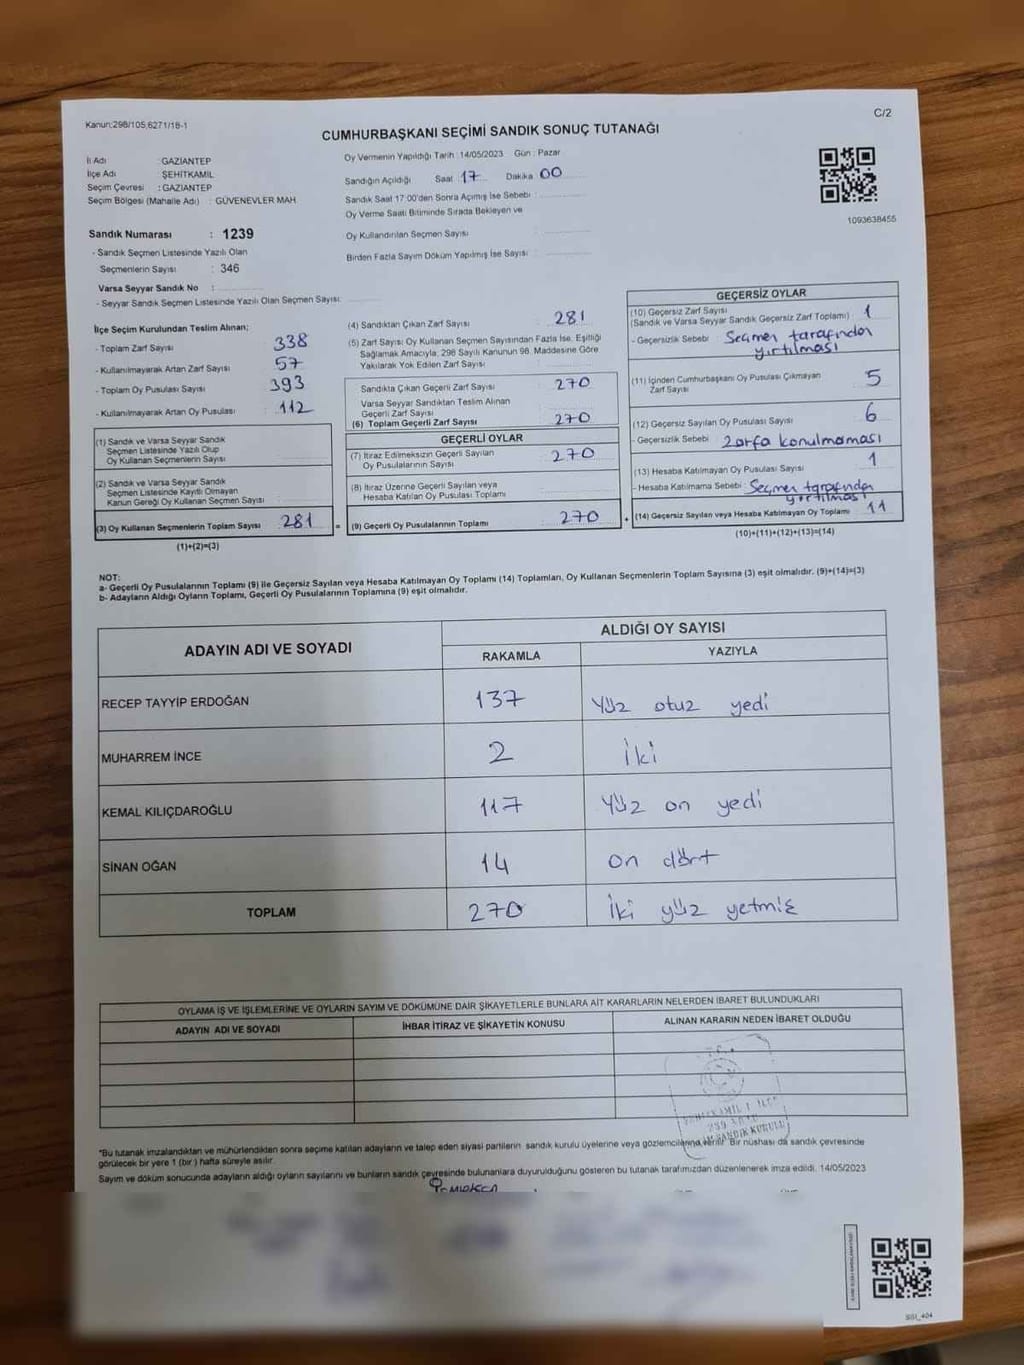 Kanun;298/105,6271/18-1
C/2
CUMHURBAŞKANI SEÇİMİ SANDIK SONUÇ TUTANAĞI
İl Adı : GAZİANTEP
İlçe Adı : ŞEHİTKAMİL
Seçim Çevresi : GAZİANTEP
Seçim Bölgesi (Mahalle Adı) : GÜVENEVLER MAH
Oy Vermenin Yapıldığı Tarih :14/05/2023 Gün : Pazar
Sandığın Açıldığı Saat 17 Dakika 00
Sandık Saat 17:00'den Sonra Açımış İse Sebebi :
Oy Verme Saati Bitiminde Sırada Bekleyen ve
Oy Kullandırılan Seçmen Sayısı :
Birden Fazla Sayım Döküm Yapılmış İse Sayısı :
1093638455
Sandık Numarası : 1239
- Sandık Seçmen Listesinde Yazılı Olan
Seçmenlerin Sayısı : 346
Varsa Seyyar Sandık No :
- Seyyar Sandık Seçmen Listesinde Yazılı Olan Seçmen Sayısı:
İlçe Seçim Kurulundan Teslim Alınan;
- Toplam Zarf Sayısı : 338
- Kullanılmayarak Artan Zarf Sayısı : 57
- Toplam Oy Pusulası Sayısı : 393
- Kullanılmayarak Artan Oy Pusulası : 112
(1) Sandık ve Varsa Seyyar Sandık
Seçmen Listesinde Yazılı Olup
Oy Kullanan Seçmenlerin Sayısı :
(2) Sandık ve Varsa Seyyar Sandık
Seçmen Listesinde Kayıtlı Olmayan
Kanun Gereği Oy Kullanan Seçmen Sayısı :
(3) Oy Kullanan Seçmenlerin Toplam Sayısı 281 =
(1)+(2)=(3)
(4) Sandıktan Çıkan Zarf Sayısı : 281
(5) Zarf Sayısı Oy Kullanan Seçmen Sayısından Fazla İse, Eşitliği
Sağlamak Amacıyla, 298 Sayılı Kanunun 98. Maddesine Göre
Yakılarak Yok Edilen Zarf Sayısı :
Sandıkta Çıkan Geçerli Zarf Sayısı : 270
Varsa Seyyar Sandıktan Teslim Alınan
Geçerli Zarf Sayısı :
(6) Toplam Geçerli Zarf Sayısı : 270
GEÇERLİ OYLAR
(7) İtiraz Edilmeksizin Geçerli Sayılan
Oy Pusulalarının Sayısı : 270
(8) İtiraz Üzerine Geçerli Sayılan veya
Hesaba Katılan Oy Pusulası Toplamı :
(9) Geçerli Oy Pusulalarının Toplamı : 270 +
GEÇERSİZ OYLAR
(10) Geçersiz Zarf Sayısı
(Sandık ve Varsa Seyyar Sandık Geçersiz Zarf Toplamı) : 1
- Geçersizlik Sebebi : Seçmen tarafından
yırtılması
(11) İçinden Cumhurbaşkanı Oy Pusulası Çıkmayan
Zarf Sayısı : 5
(12) Geçersiz Sayılan Oy Pusulası Sayısı : 6
- Geçersizlik Sebebi : Zarfa konulmaması
(13) Hesaba Katılmayan Oy Pusulası Sayısı : 1
- Hesaba Katılmama Sebebi : Seçmen tarafından
yırtılması
(14) Geçersiz Sayılan veya Hesaba Katılmayan Oy Toplamı : 11
(10)+(11)+(12)+(13)=(14)
NOT:
a- Geçerli Oy Pusulalarının Toplamı (9) ile Geçersiz Sayılan veya Hesaba Katılmayan Oy Toplamı (14) Toplamları, Oy Kullanan Seçmenlerin Toplam Sayısına (3) eşit olmalıdır. (9)+(14)=(3)
b- Adayların Aldığı Oyların Toplamı, Geçerli Oy Pusulalarının Toplamına (9) eşit olmalıdır.
ADAYIN ADI VE SOYADI
ALDIĞI OY SAYISI
RAKAMLA YAZIYLA
RECEP TAYYİP ERDOĞAN 137 Yüz otuz yedi
MUHARREM İNCE 2 İki
KEMAL KILIÇDAROĞLU 117 Yüz on yedi
SİNAN OĞAN 14 On dört
TOPLAM 270 İki yüz yetmiş
OYLAMA İŞ VE İŞLEMLERİNE VE OYLARIN SAYIM VE DÖKÜMÜNE DAİR ŞİKAYETLERLE BUNLARA AİT KARARLARIN NELERDEN İBARET BULUNDUKLARI
ADAYIN ADI VE SOYADI İHBAR İTİRAZ VE ŞİKAYETİN KONUSU ALINAN KARARIN NEDEN İBARET OLDUĞU
T.C.
SANDIK KURULU
*Bu tutanak imzalandıktan ve mühürlendikten sonra seçime katılan adayların ve talep eden siyasi partilerin sandık kurulu üyelerine veya gözlemcilerine verilir. Bir nüshası da sandık çevresinde
görülecek bir yere 1 (bir) hafta süreyle asılır.
Sayım ve döküm sonucunda adayların aldığı oyların sayılarını ve bunların sandık çevresinde bulunanlara duyurulduğunu gösteren bu tutanak tarafımızdan düzenlenerek imza edildi. 14/05/2023
SSİ_404